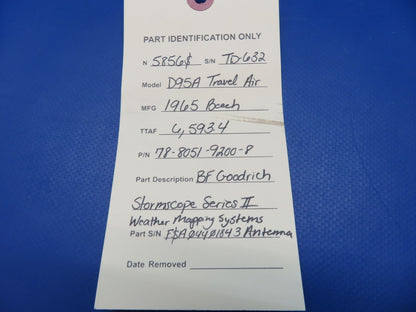 PART IDENTIFICATION ONLY
N 5856S S/N TD-632
Model D95A Travel Air
MFG 1965 Beech
TTAF 6,593.4
P/N 78-8051-9200-8
Part Description BF Goodrich
Stormscope Series II
Weather Mapping Systems
Part S/N Antenna
Date Removed